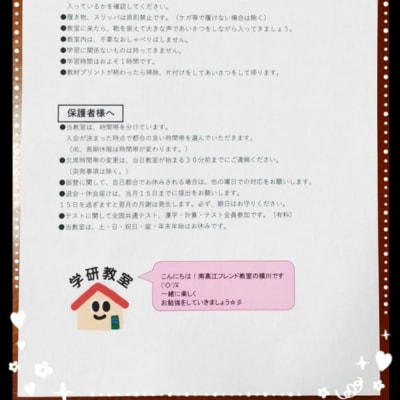 入っているかを確認してください。
●履き物、スリッパは原則禁止です。(ケガ等で履けない場合は除く)
●教室に来たら、靴を揃えて大きな声であいさつをしながら入ってきましょう。
●教室内は、不要なおしゃべりはしません。
●学習に関係ないものは持ってきません。
●学習時間はおよそ1時間です。
●教材プリントが終わったら掃除、片付けをしてあいさつをして帰ります。
保護者様へ
●当教室は、時間帯を分けています。
入会が決まった時点で都合の良い時間帯を選んでいただきます。
(尚、長期休暇は時間帯が変わります。)
●欠席時間帯の変更は、当日教室が始まる30分前までにご連絡ください。
(突発事項は除く。)
●振替に関して、自己都合でお休みされる場合は、他の曜日での対応をお願いします。
●退会・休会届けは、当月15日までに提出をお願いします。
15日を過ぎますと翌月の月謝が発生します。必ず、期日はお守りください。
●テストに関して全国共通テスト、漢字・計算・テスト全員参加です。(有料)
●当教室は、土・日・祝日・盆・年末年始はお休みです。
学研教室
こんにちは!南高江フレンド教室の横川です
(^O^)/
一緒に楽しく
お勉強をしていきましょう☆彡